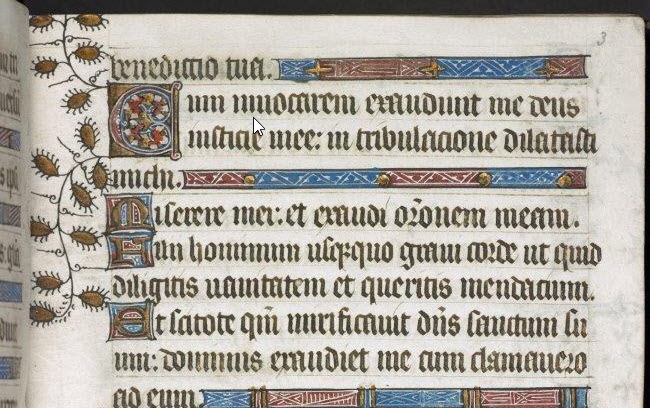 3
benedictio tua.
Cum inuocarem exaudiuit me deus
iusticie mee: in tribulacione dilatasti
michi.
Miserere mei: et exaudi orõnem meam.
Filii hominum usq̃quo graui corde ut quid
diligitis uanitatem et queritis mendacium.
Et scitote qm̃ mirificauit dñs sanctum su
um: dominus exaudiet me cum clamauero
ad eum.